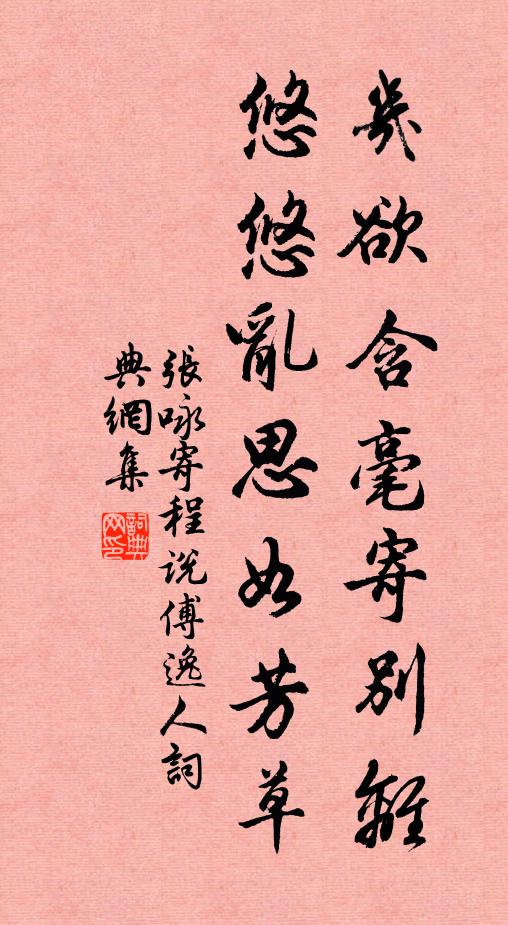 幾欲含毫寄別離
悠悠亂思如芳草
張咏寄程説傅逸人詞
典網集
詞典網印